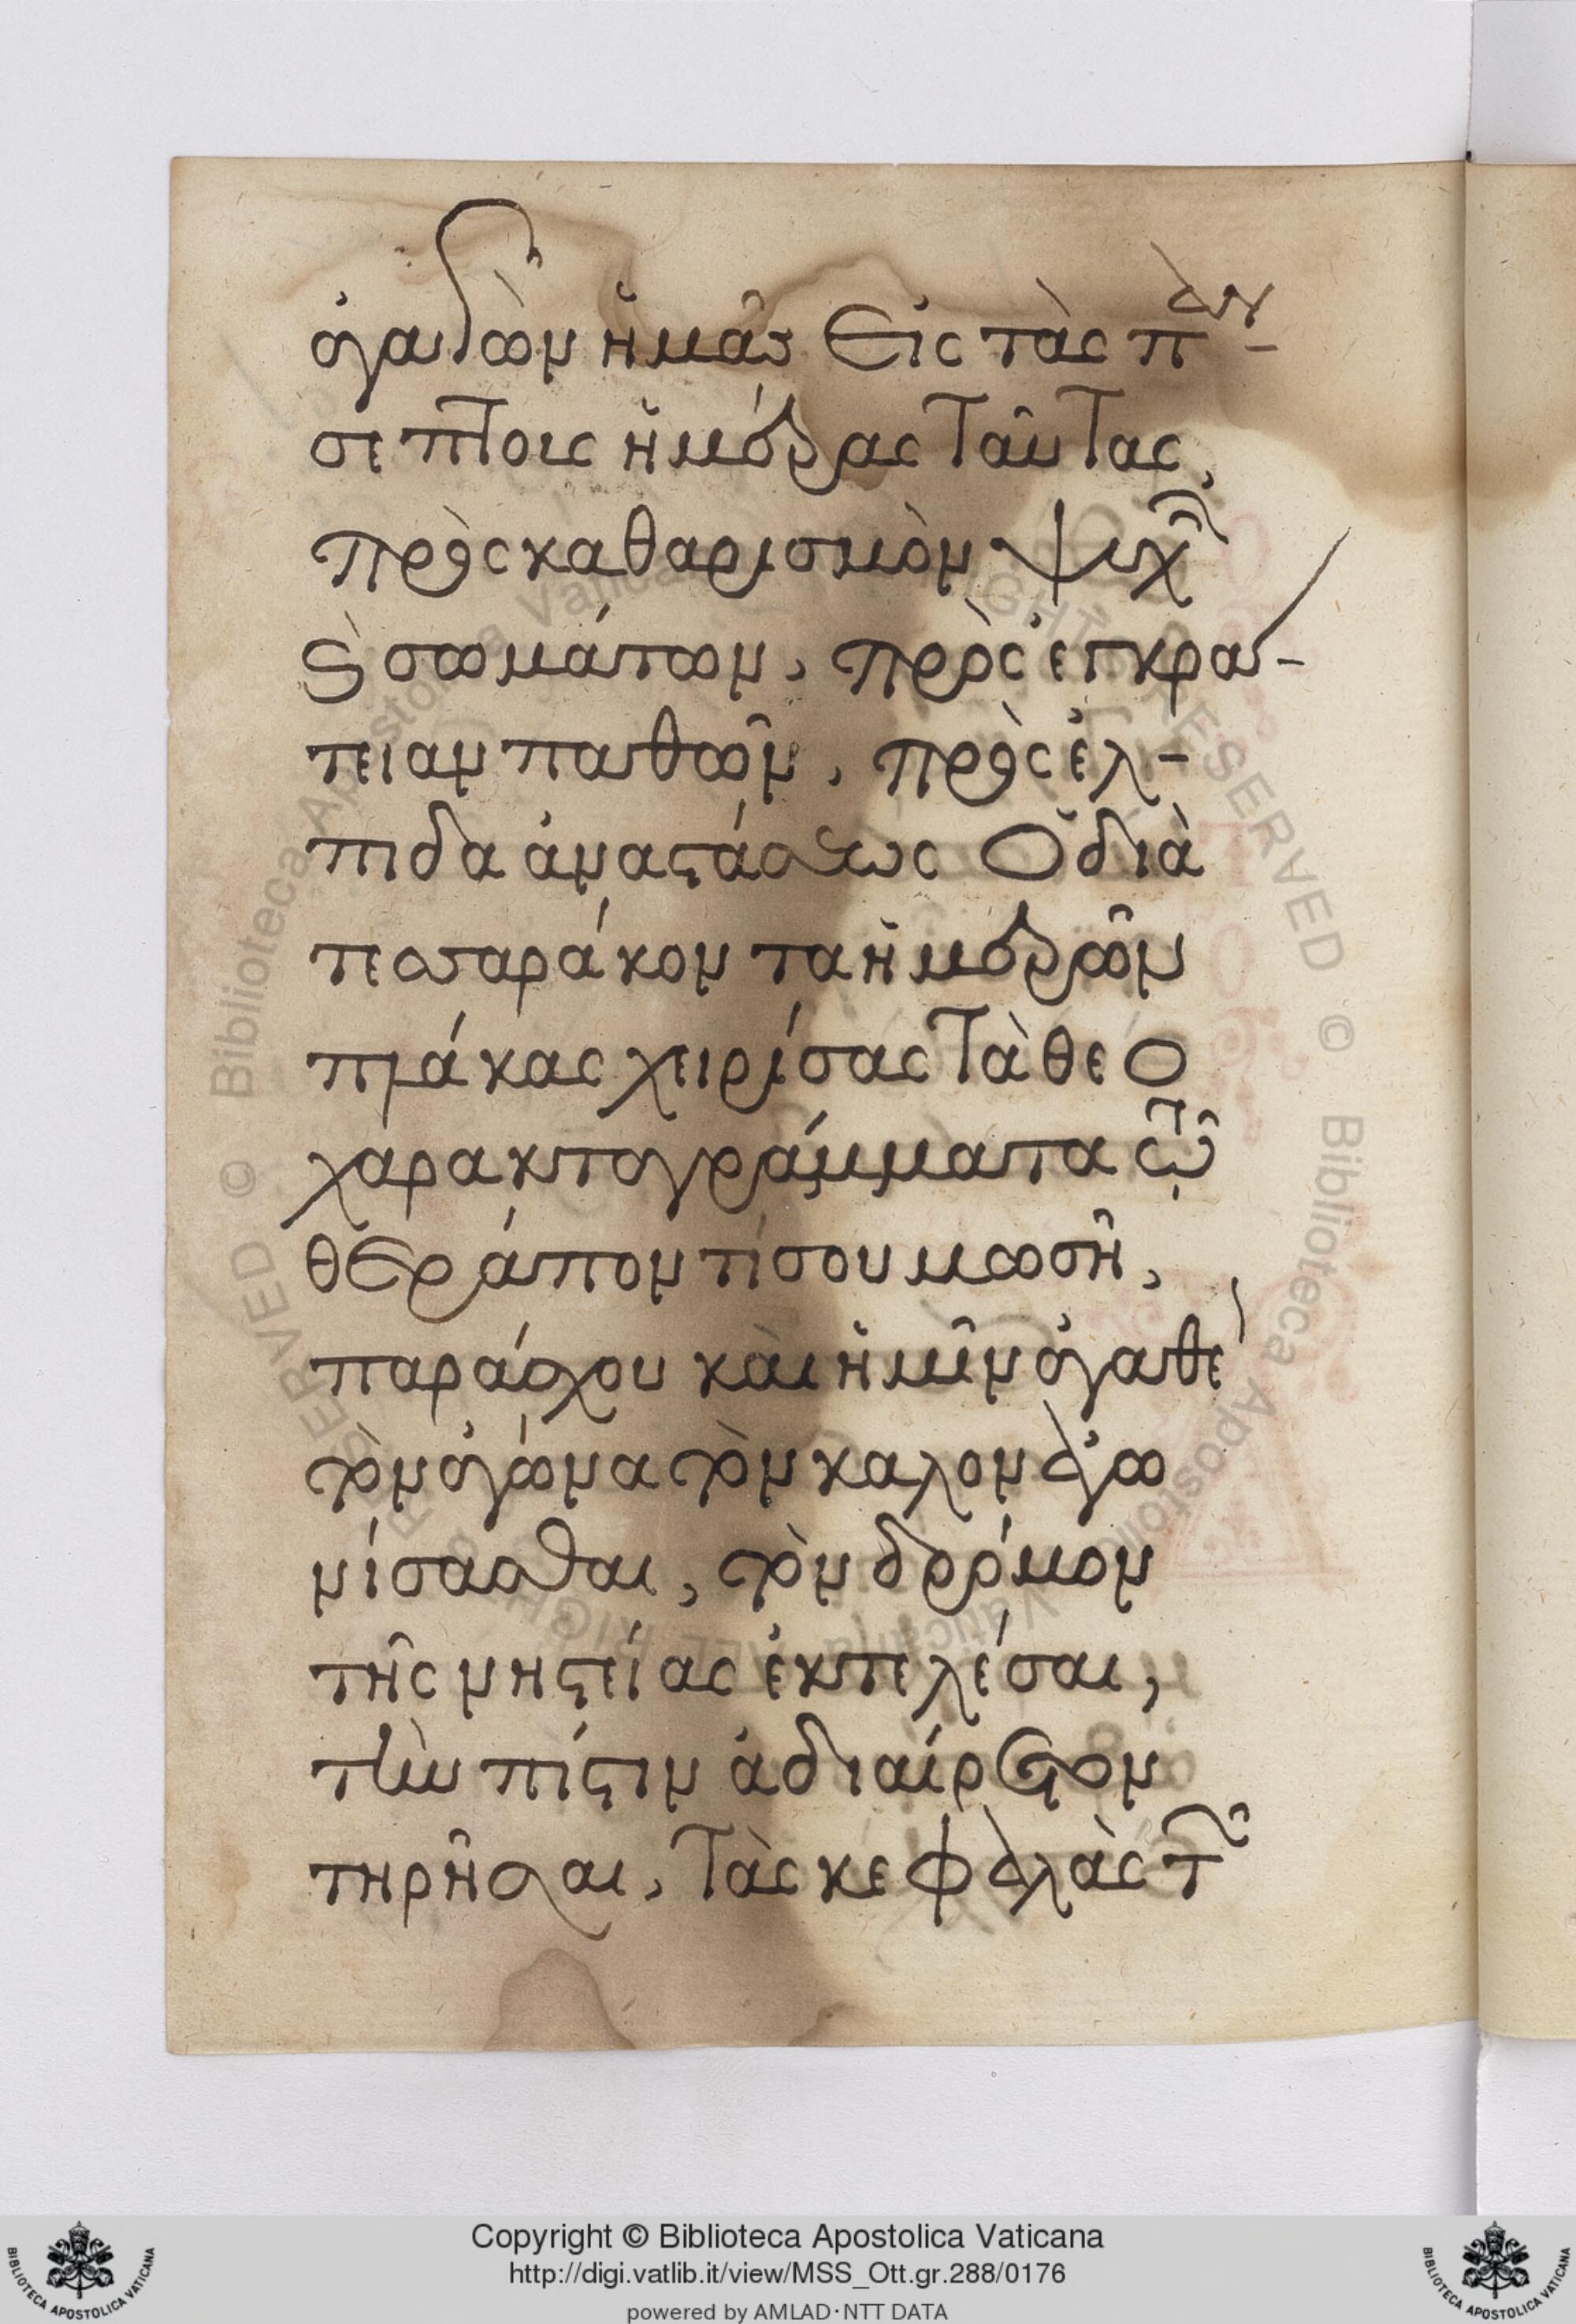 ἀγαγὼν ἡμᾶς εἰς τὰς παν-
σέπτοις ἡμέρας ταύτας,
πρὸς καθαρισμὸν ψυχῶν
καὶ σωμάτων, πρὸς ἐγκρά-
τειαν παθῶν, πρὸς ἐλ-
πίδα ἀναστάσεως ὁ διὰ
τεσσαράκοντα ἡμερῶν
πλάκας χειρίσας τὰ θεο
χαρακτογράμματα τῷ
θεράποντί σου μωσῆ,
παράσχου καὶ ἡμῖν ἀγαθὲ
τὸν ἀγῶνα τὸν καλὸν ἀγω
νίσασθαι, τὸν δρόμον
τῆς νηστείας ἐκτελέσαι,
τὴν πίστιν ἀδιαίρετον
τηρῆσαι, τὰς κεφαλὰς τῶν
Copyright © Biblioteca Apostolica Vaticana
http://digi.vatlib.it/view/MSS_Ott.gr.288/0176
powered by AMLAD·NTT DATA